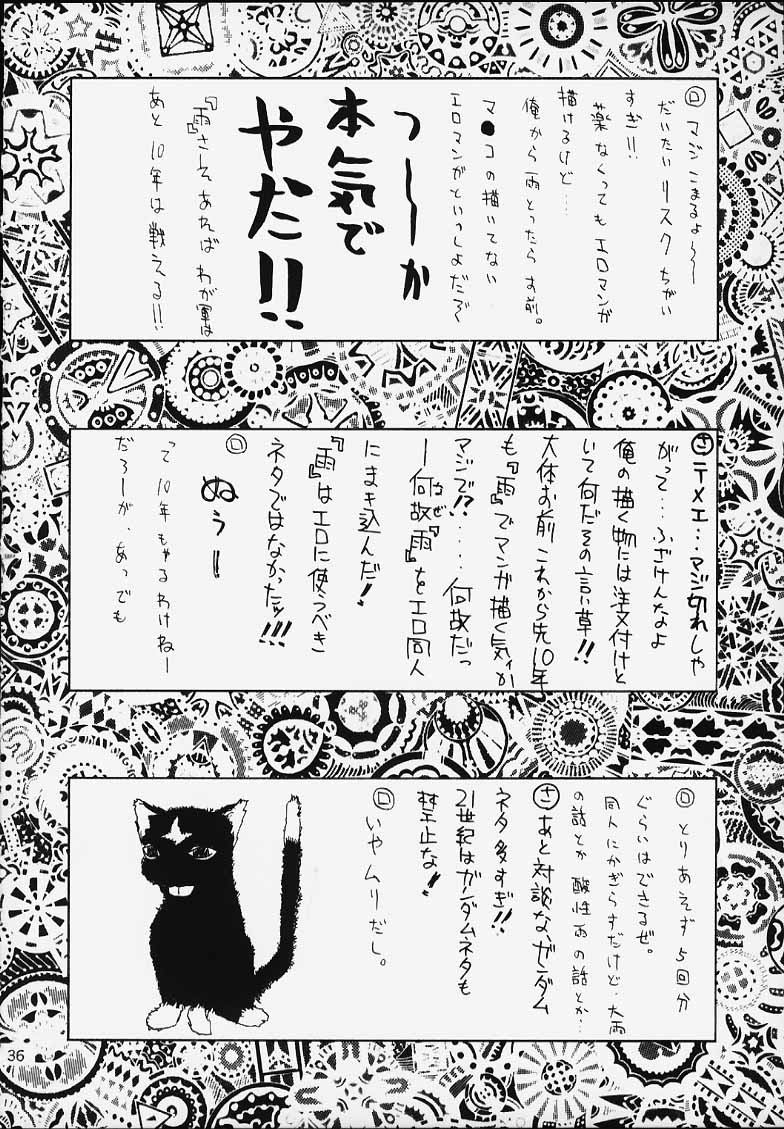 ロ マジこまるよ〜〜
だいたいリスクちがい
すぎ!!
薬なくってもエロマンガ
描けるけど…
俺から雨とったらす前。
マ●コの描いてない
エロマンガといっしよだぞ〜
つ〜〜か
本気で
やだ!!
『雨』さえあればわが軍は
あと10年は戦える!!
さ テメエ…マジ切れしゃ
がって…ふざけんなよ
俺の描く物には注文付けと
いて何だその言い草!!
大体お前これから先10年
も『雨』でマンガ描く気か
マジで!?....何故だっ
ー何故『雨』をエロ同人
なぜ
にまき込んだ!
『雨』はエロに使うべき
ネタではなかったッ!!!
ロ ぬぅー
って10年もやるわけねー
だろーが、あっでも
ロ とりあえず5回分
ぐらいはできるぜ。
同人にかぎらずだけど、大雨
の話とか酸性雨の話とか…
さ あと対談な、ガンダム
ネタ多すぎ!!
21世紀はガンダムネタも
禁止な!
ロ いやムリだし。
36